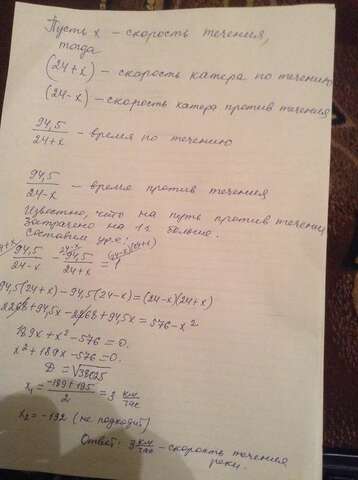 Пусть x – скорость течения,
тогда
(24+x) – скорость катера по течению
(24-x) – скорость катера против течения
94,5/24+x – время по течению
94,5/24-x – время против течения
Известно, что на путь против течения
затрачено на 1 ч больше.
Составим ур-е:
94,5/24-x - 94,5/24+x = 1
94,5(24+x)-94,5(24-x)=(24-x)(24+x)
2268+94,5x-2268+94,5x=576-x²
189x+x²-576=0.
x²+189x-576=0.
D=√38025
x₁= -189+195/2 =3 км/час
x₂=-192 (не подходит)
Ответ: 3 км/час – скорость течения
реки.